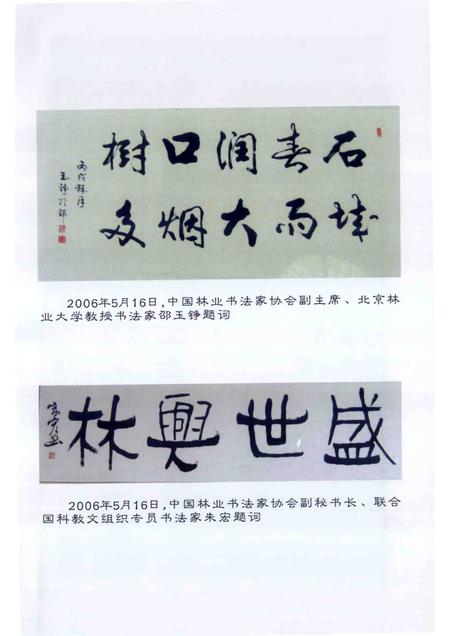 石城
春雨
润大
口烟
樹多
丙戌
2006年5月16日,中国林业书法家协会副主席、北京林
业大学教授书法家邵玉铮题词
盛世興林
2006年5月16日,中国林业书法家协会副秘书长、联合
国科教文组织专员书法家朱宏题词